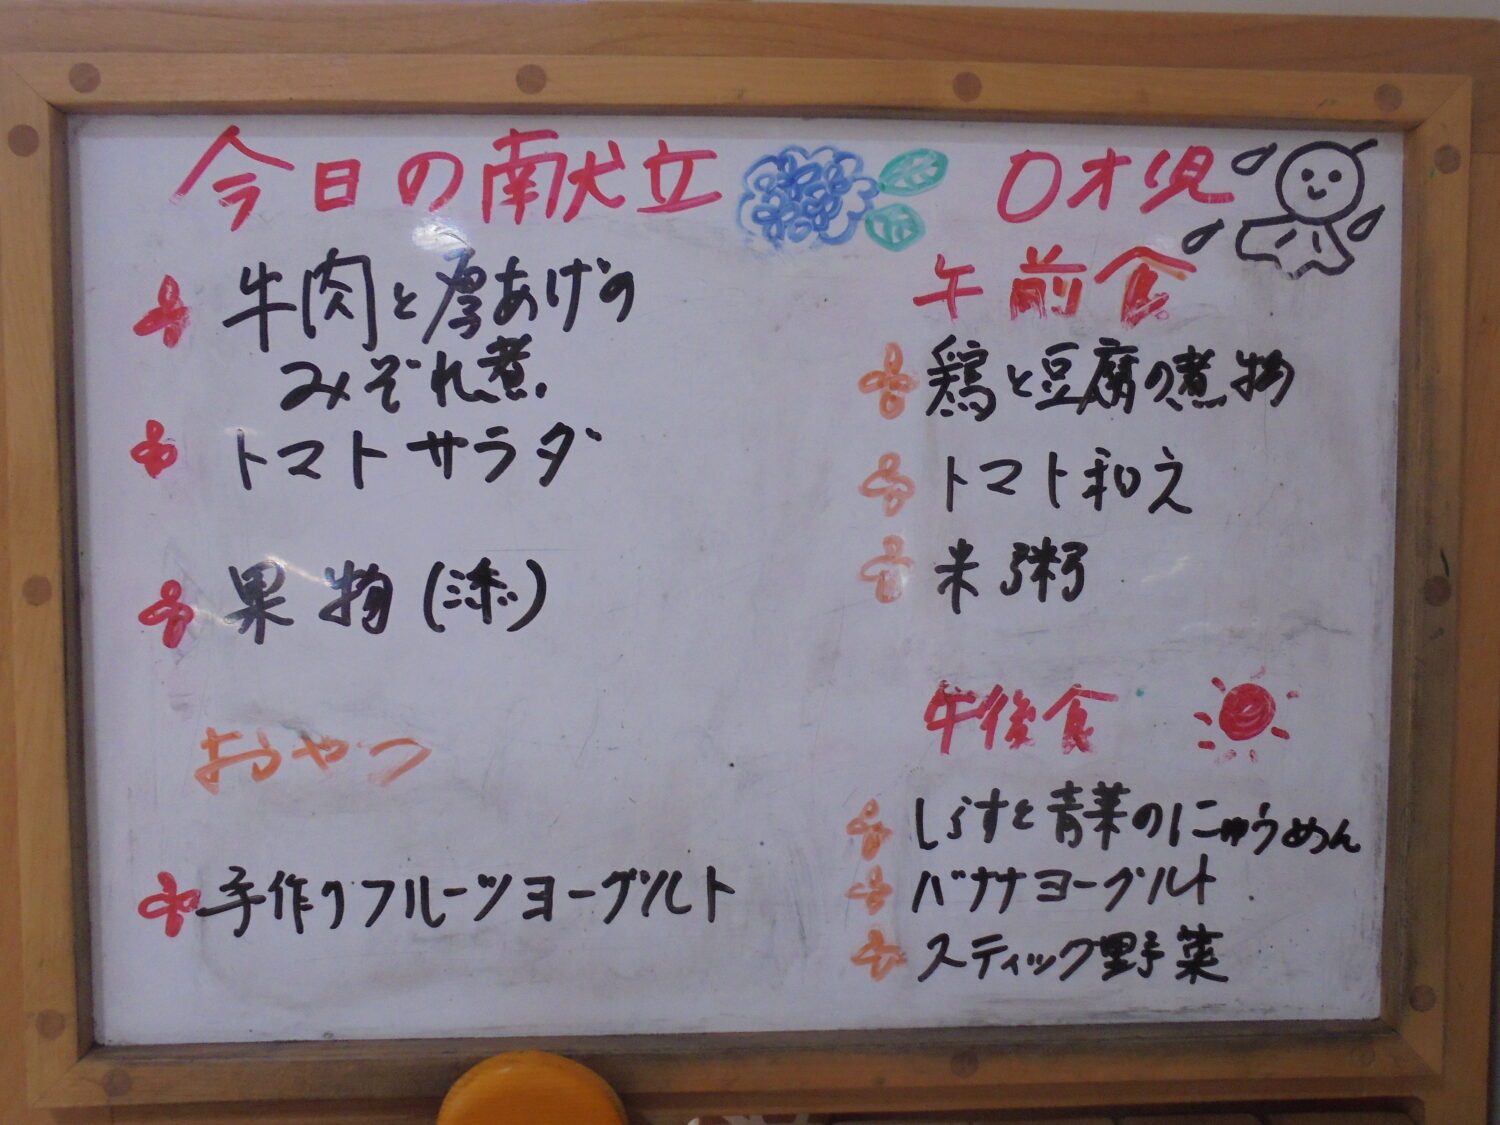 今日の献立
牛肉と厚あげの
みぞれ煮
トマトサラダ
果物(添)
おやつ
手作りフルーツヨーグルト
0才児
午前食
鶏と豆腐の煮物
トマト和え
米粥
午後食
しらすと青菜のにゅうめん
バナナヨーグルト
スティック野菜